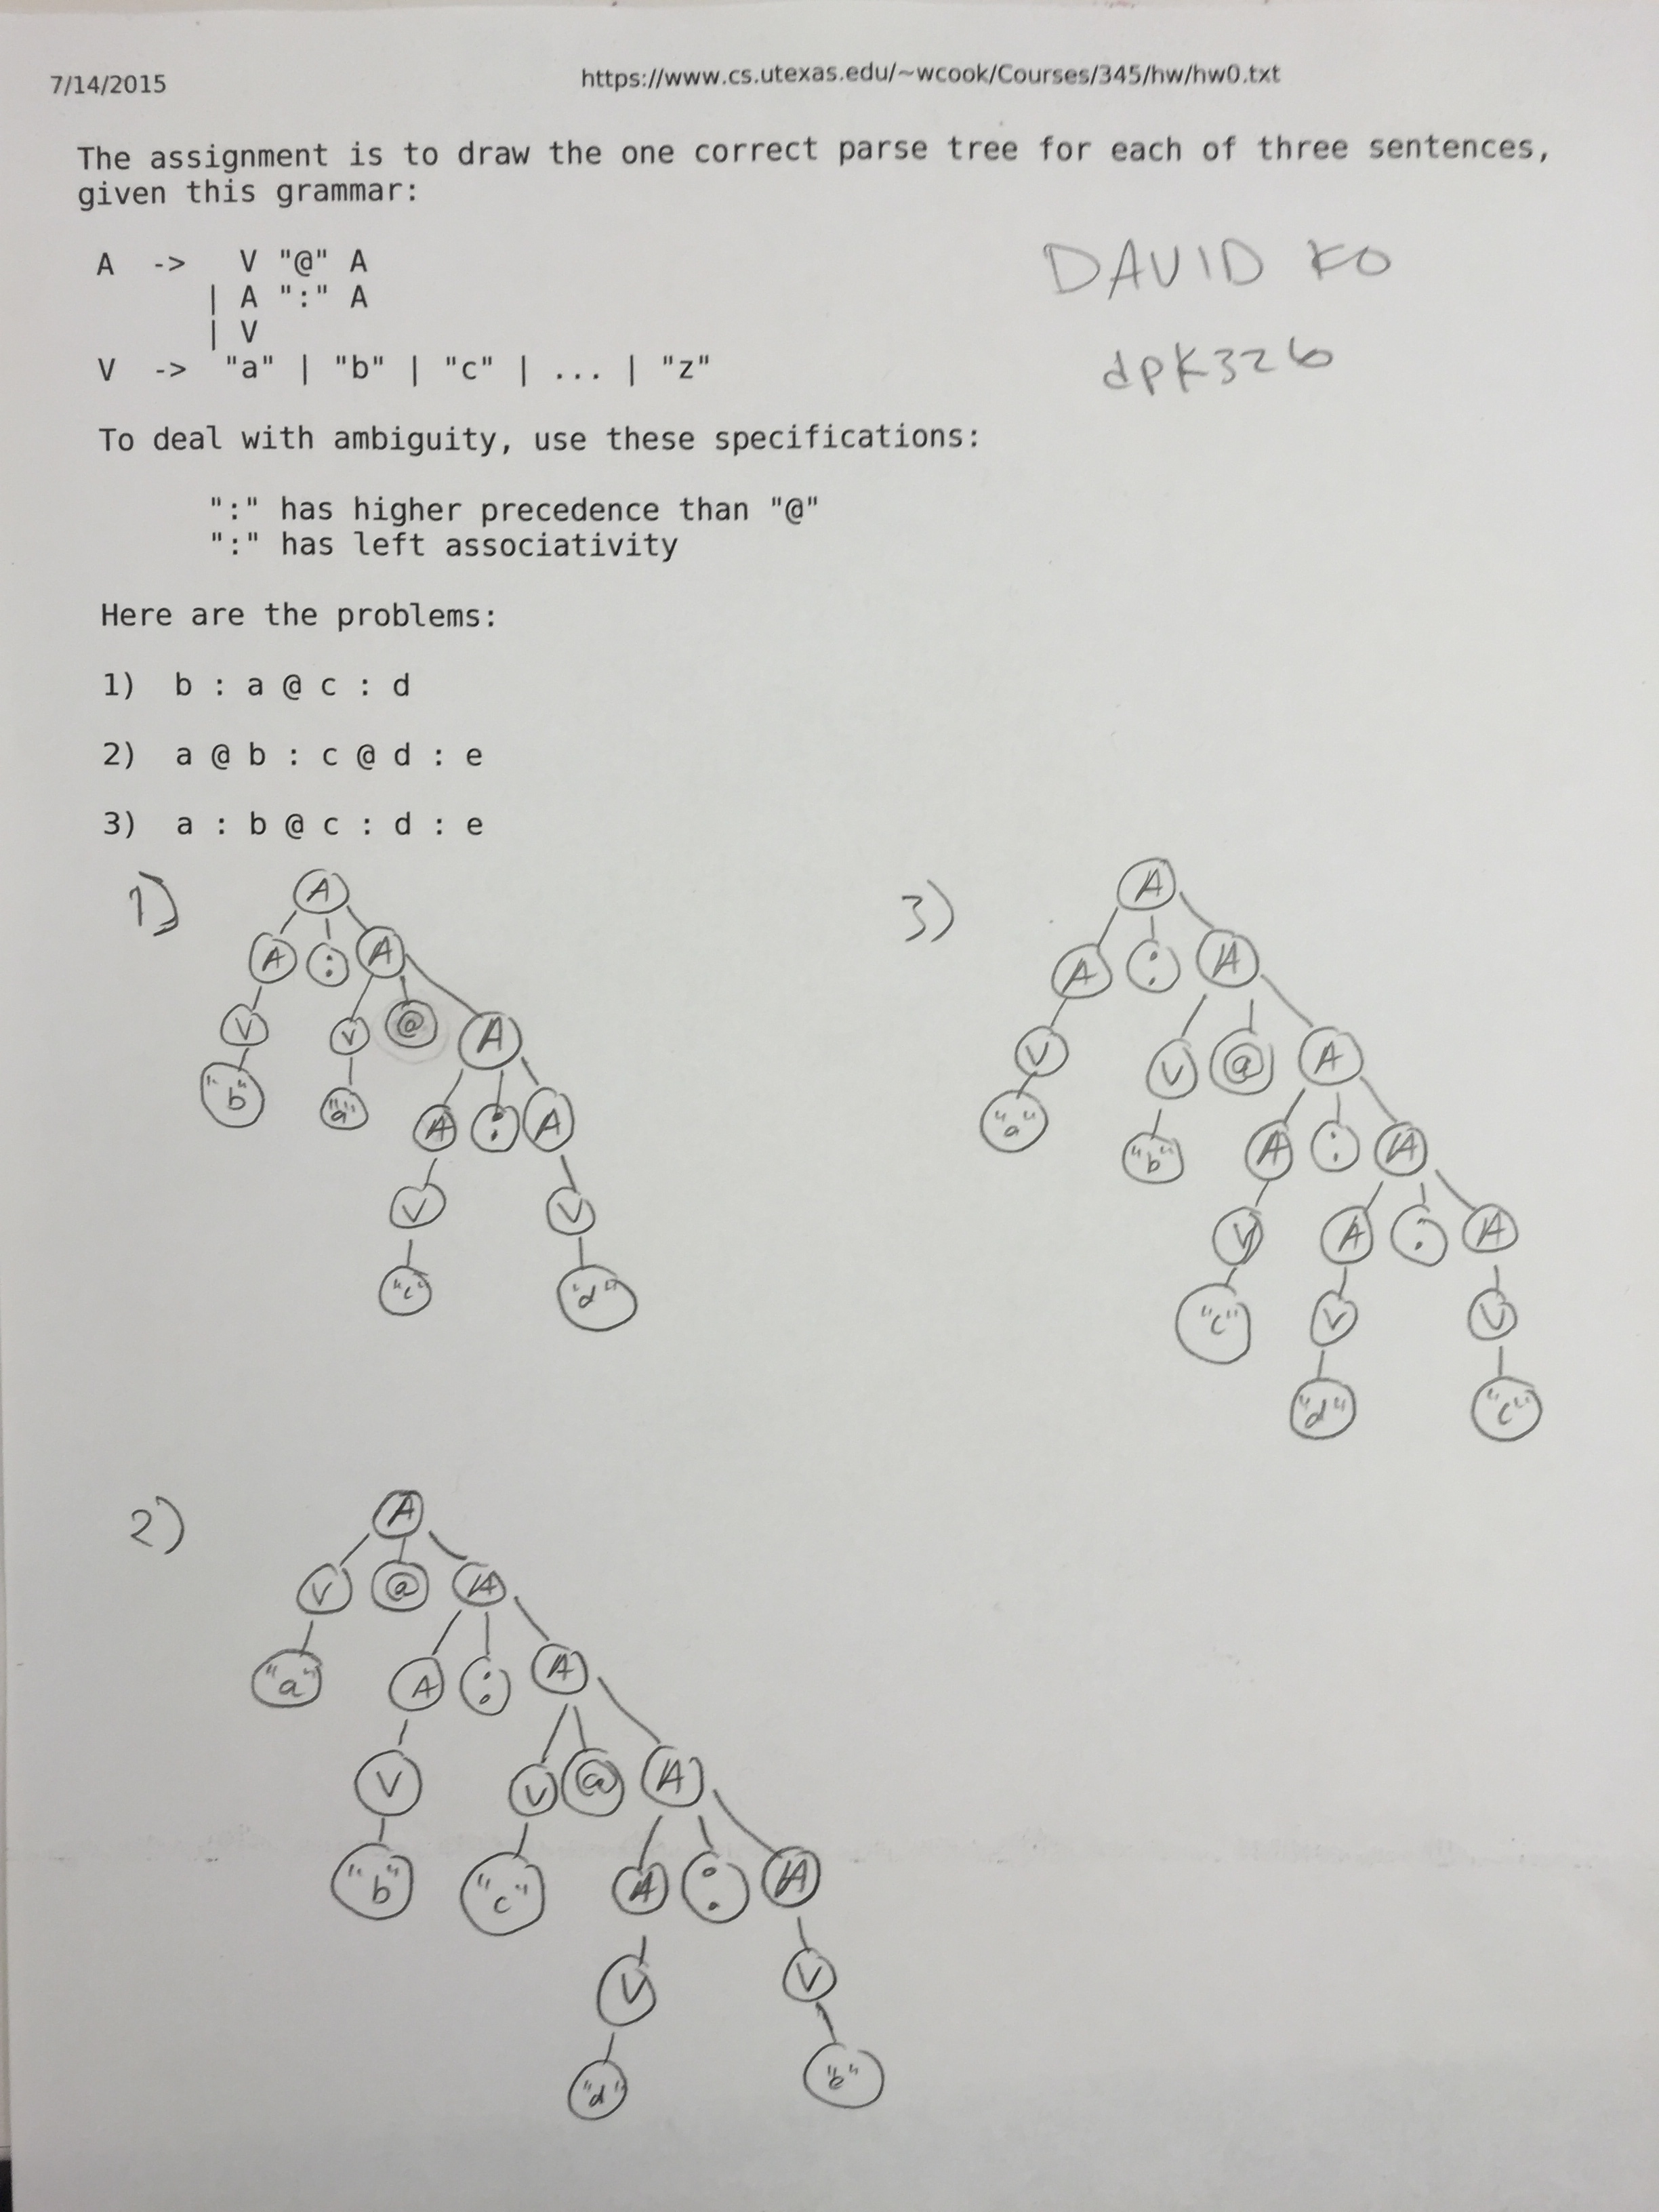 7/14/2015 https://www.cs.utexas.edu/~wcook/Courses/345/hw/hw0.txt
The assignment is to draw the one correct parse tree for each of three sentences,
given this grammar:
A -> V "@" A
| A ":" A
| V
V -> "a" | "b" | "c" | ... | "z"
DAVID KO
dpk326
To deal with ambiguity, use these specifications:
":" has higher precedence than "@"
":" has left associativity
Here are the problems:
1) b : a @ c : d
2) a @ b : c @ d : e
3) a : b @ c : d : e
1)
A
A : A
V V @ A
"b" "a" A : A
V V
"c" "d"
3)
A
A : A
V V @ A
"a" "b" A : A
V A : A
"c" V V
"d" "c"
2)
A
V @ A
"a" A : A
V V @ A
"b" "c" A : A
V V
"d" "e"